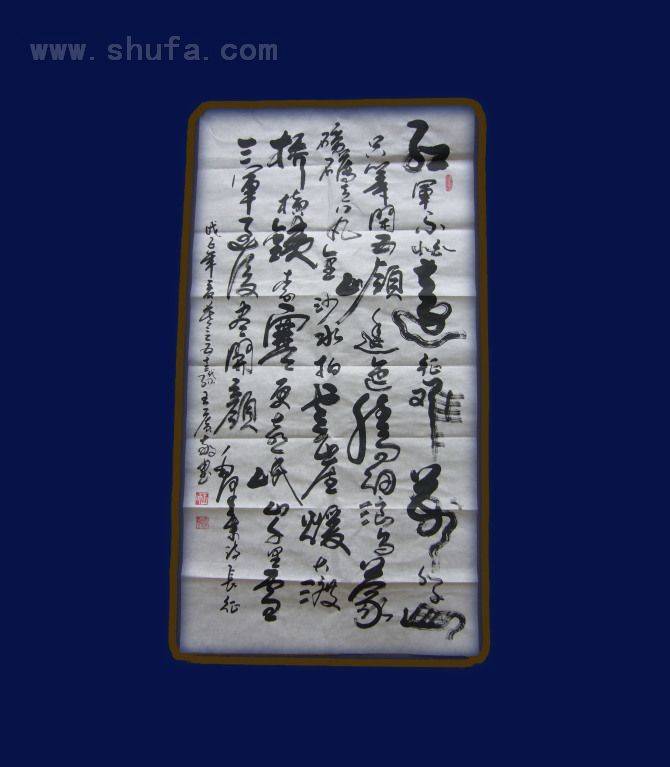 www.shufa.com
红軍不怕遠征难萬水千山
只等閑五嶺逶迤腾细浪乌蒙
磅礴走泥丸金沙水拍雲崖暖大渡
桥横鐵索寒更喜岷山千里雪
三軍過後盡開顔 毛泽东诗长征
戊子年春 书